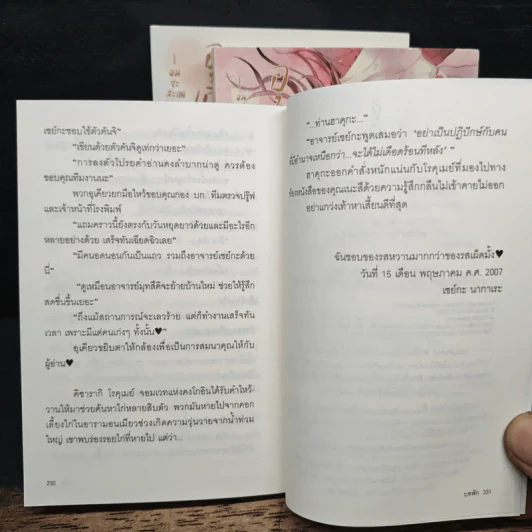 เซย์กะชอบใช้ตัวคันจิ"
"เขียนด้วยตัวคันจิดูเท่กว่าเยอะ"
"การลงตัวโปรยคำอ่านคงลำบากน่าดู ควรต้อง
ขอบคุณทีมงานนะ"
พวกอุเคียวยกมือไหว้ขอบคุณกอง บก. ทีมตรวจปรู๊ฟ
และเจ้าหน้าที่โรงพิมพ์
"แถมคราวนี้ยังตรงกับวันหยุดยาวด้วยและมีอะไรอีก
หลายอย่างด้วย เสร็จทันเฉียดฉิวเลย"
"มีคนอดนอนกันเป็นแถว รวมถึงอาจารย์เซย์กะด้วย
นี่"
"ดูเหมือนอาจารย์มุทสึคิจะย้ายบ้านใหม่ ช่วยให้รู้สึก
สดชื่นขึ้นเยอะ"
"ถึงแม้สถานการณ์จะเลวร้าย แต่ก็ทำงานเสร็จทัน
เวลา เพราะมีแต่คนเก่งๆ ทั้งนั้น♥"
อุเคียวขยิบตาให้กล้องเพื่อเป็นการสมนาคุณให้กับ
ผู้อ่าน♥
คิซารากิ โรคุเมย์ จอมเวทแห่งคงโกอินได้รับคำไหว้
วานให้มาช่วยค้นหาไก่หลายสิบตัว พวกมันหายไปจากคอก
เลี้ยงไก่ในอารามอนเมียวช่วงเกิดความวุ่นวายจากน้ำท่วม
ใหญ่ เขาพบร่องรอยไก่ที่หายไป แต่ว่า...
230
"...ท่านฮาคุกะ..."
"อาจารย์เซย์กะพูดเสมอว่า 'อย่าเป็นปฏิปักษ์กับคน
ที่มีอำนาจเหนือกว่า...จะได้ไม่เดือดร้อนทีหลัง' "
ฮาคุกะออกคำสั่งหนักแน่นกับโรคุเมย์ที่มองไปทาง
ห้องหนังสือของคุณเนะสึด้วยความรู้สึกกลืนไม่เข้าคายไม่ออก
อย่าแกว่งเท้าหาเสี้ยนดีที่สุด
ฉันชอบของรสหวานมากกว่าของรสเผ็ดมั้ง♥
วันที่ 15 เดือน พฤษภาคม ค.ศ. 2007
เซย์กะ นากาเระ
บทพัก 231